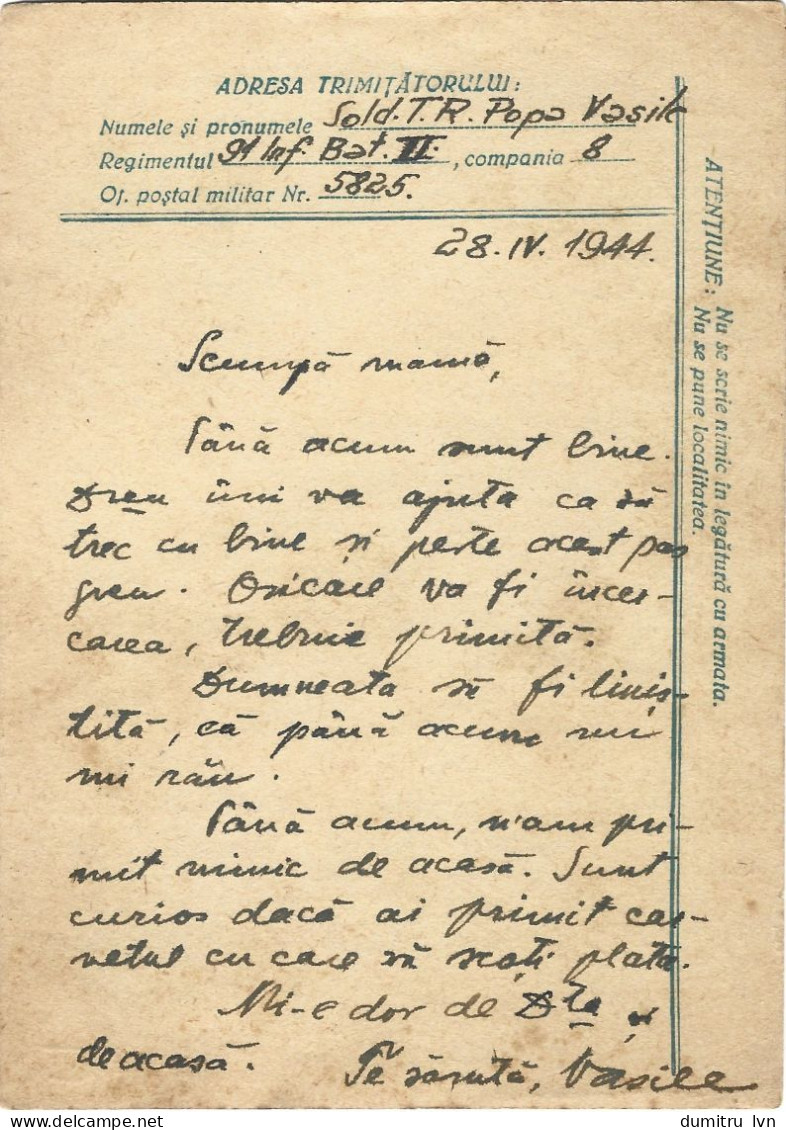 ADRESA TRIMIȚĂTORULUI:
Numele și pronumele Sold. T. R. Popa Vasile
Regimentul 91 Inf. Bat. II, compania 8
Of. poștal militar Nr. 5825.
ATENȚIUNE: Nu se scrie nimic în legătură cu armata.
Nu se pune localitatea.
28. IV. 1944.
Scumpă mamă,
Până acum sunt bine.
va ajuta ca să
trec cu bine și peste acest pas
greu. Oricare va fi încer-
carea, trebuie primită.
Dumneata să fi liniș-
tită, că până acum nu
mi rău.
Până acum, n'am pri-
mit nimic de acasă. Sunt
curios dacă ai primit car-
netul cu care să scoți plata.
Mi-e dor de Dta și
de acasă. Te sărută, Vasile
dumitru lvn